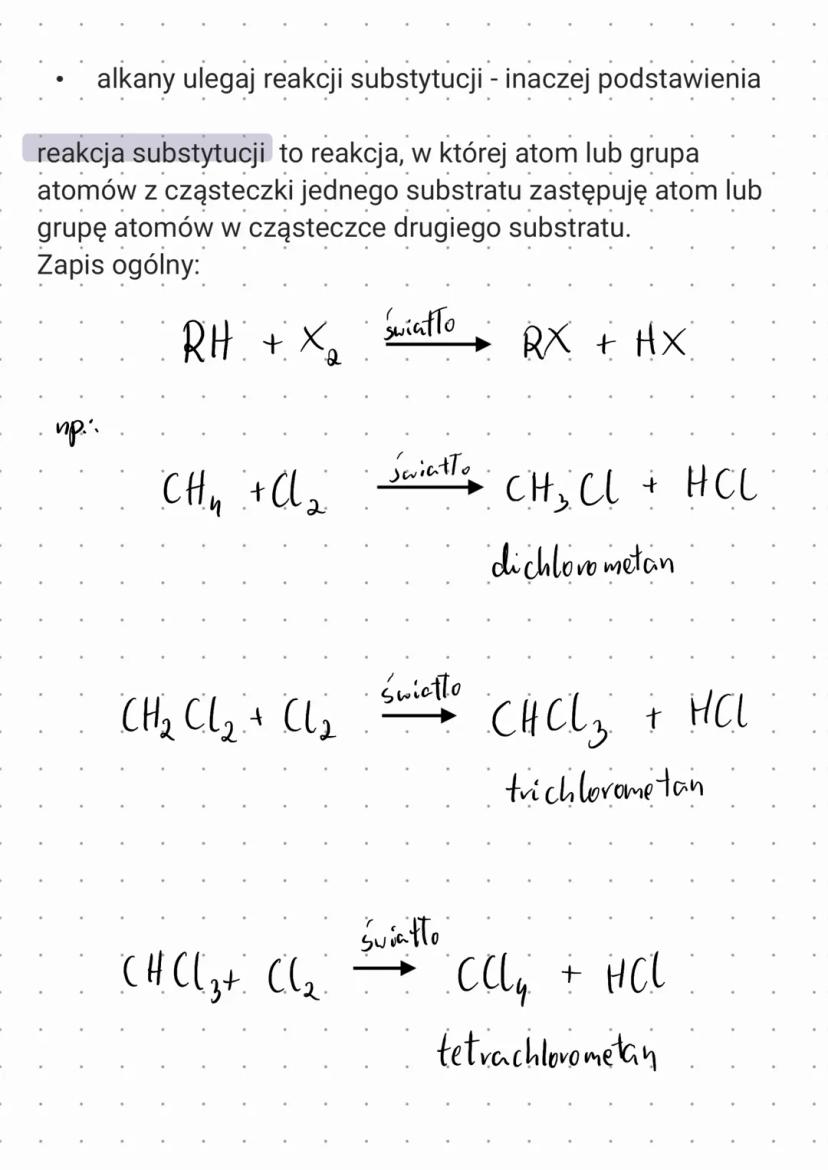 • alkany ulegaj reakcji substytucji - inaczej podstawienia
reakcja substytucji to reakcja, w której atom lub grupa
atomów z cząsteczki jednego substratu zastępuję atom lub
grupę atomów w cząsteczce drugiego substratu.
Zapis ogólny:
RH + X₂ światło → RX + HX
np.:
CH₄ + Cl₂ światło → CH₃Cl + HCl
dichlorometan
CH₂Cl₂ + Cl₂ światło → CHCl₃ + HCl
trichlorometan
CHCl₃ + Cl₂ światło → CCl₄ + HCl
tetrachlorometan